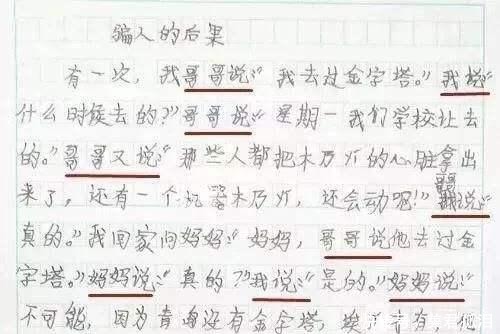 骗人的后果
有一次，我哥哥说：“我去过金字塔。”我说：“
什么时候去的？”哥哥说：“星期一我们学校让去
的。”哥哥又说：“那些人都把木乃伊的心脏拿出
来了，还有一个木乃伊，还会动呢！”哥哥说：“
真的。”我回家问妈妈：“妈妈，哥哥说他去过金
字塔。”妈妈说：“真的？”我说：“是的。”妈妈说：“
不可能，因为青岛没有金字塔，埃及才有，